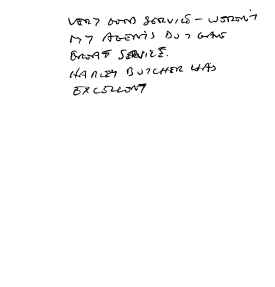 VERY GOOD SERVICE - WEREN'T
MY AGENTS BUT GAVE
GREAT SERVICE.
HARLEY BUTCHER WAS
EXCELLENT